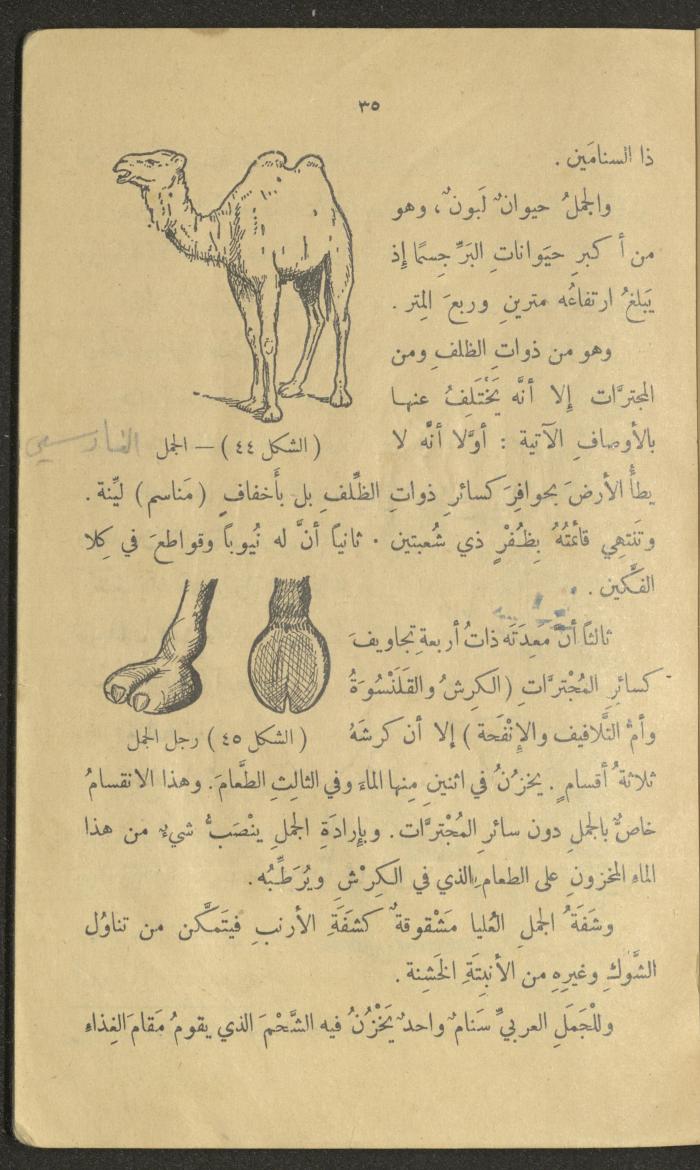 ٣٥
ذا السنامَين .
والجملُ حيوانٌ لَبونٌ ، وهو
من أكبرِ حيَوانات البَرِّ جِسمًا إذ
يَبلغُ ارتفاعُه مترينِ وربعَ المِتر .
وهو من ذواتِ الظلفِ ومن
المجترَّات إلا أنَّه يَخْتَلِفُ عنهـا
بالأوصافِ الآتية : أوَّلا أنَّه لا
(الشكل ٤٤) – الجمل الفارسي
يطأُ الأرضَ بحوافِرَ كسائرِ ذواتِ الظِّلفِ بل بأَخفافٍ (مَناسم) ليِّنة .
وتَنتهِي قائمتُهُ بِظُفْرٍ ذي شُعبتين . ثانياً أنَّ له نُيوباً وقواطعَ في كِلا
الفكَّين .
ثالثاً أنَّ معِدَتَه ذاتُ أربعةِ تجاويفَ
كسائرِ المُجْترَّاتِ (الكرِشُ والقَلَنْسُوَةُ
وأمُّ التَّلافيف والإِنْفَحة) إلا أن كرشَهُ
(الشكل ٤٥) رجل الجمل
ثلاثةُ أقسامٍ . يخزُنُ في اثنينِ مِنها الماءَ وفي الثالثِ الطَّعامَ . وهذا الانقسامُ
خاصٌّ بالجملِ دون سائرِ المُجْترَّات . وبإِرادَةِ الجملِ ينْصَبُّ شيءٌ من هذا
الماءِ المخزونِ على الطعام الذي في الكِرْشِ ويُرَطِّبُه .
وشَفَةُ الجملِ العُليا مَشْقوقةٌ كشفَةَِ الأرنبِ فيتَمكَّن من تناوُل
الشَّوكِ وغيرِهِ من الأنبتَةِ الخَشِنة .
وللْجَمَلِ العربيِّ سَنامٌ واحدٌ يَخْزُنُ فيه الشَّحْمَ الذي يقومُ مَقامَ الغِذاءِ